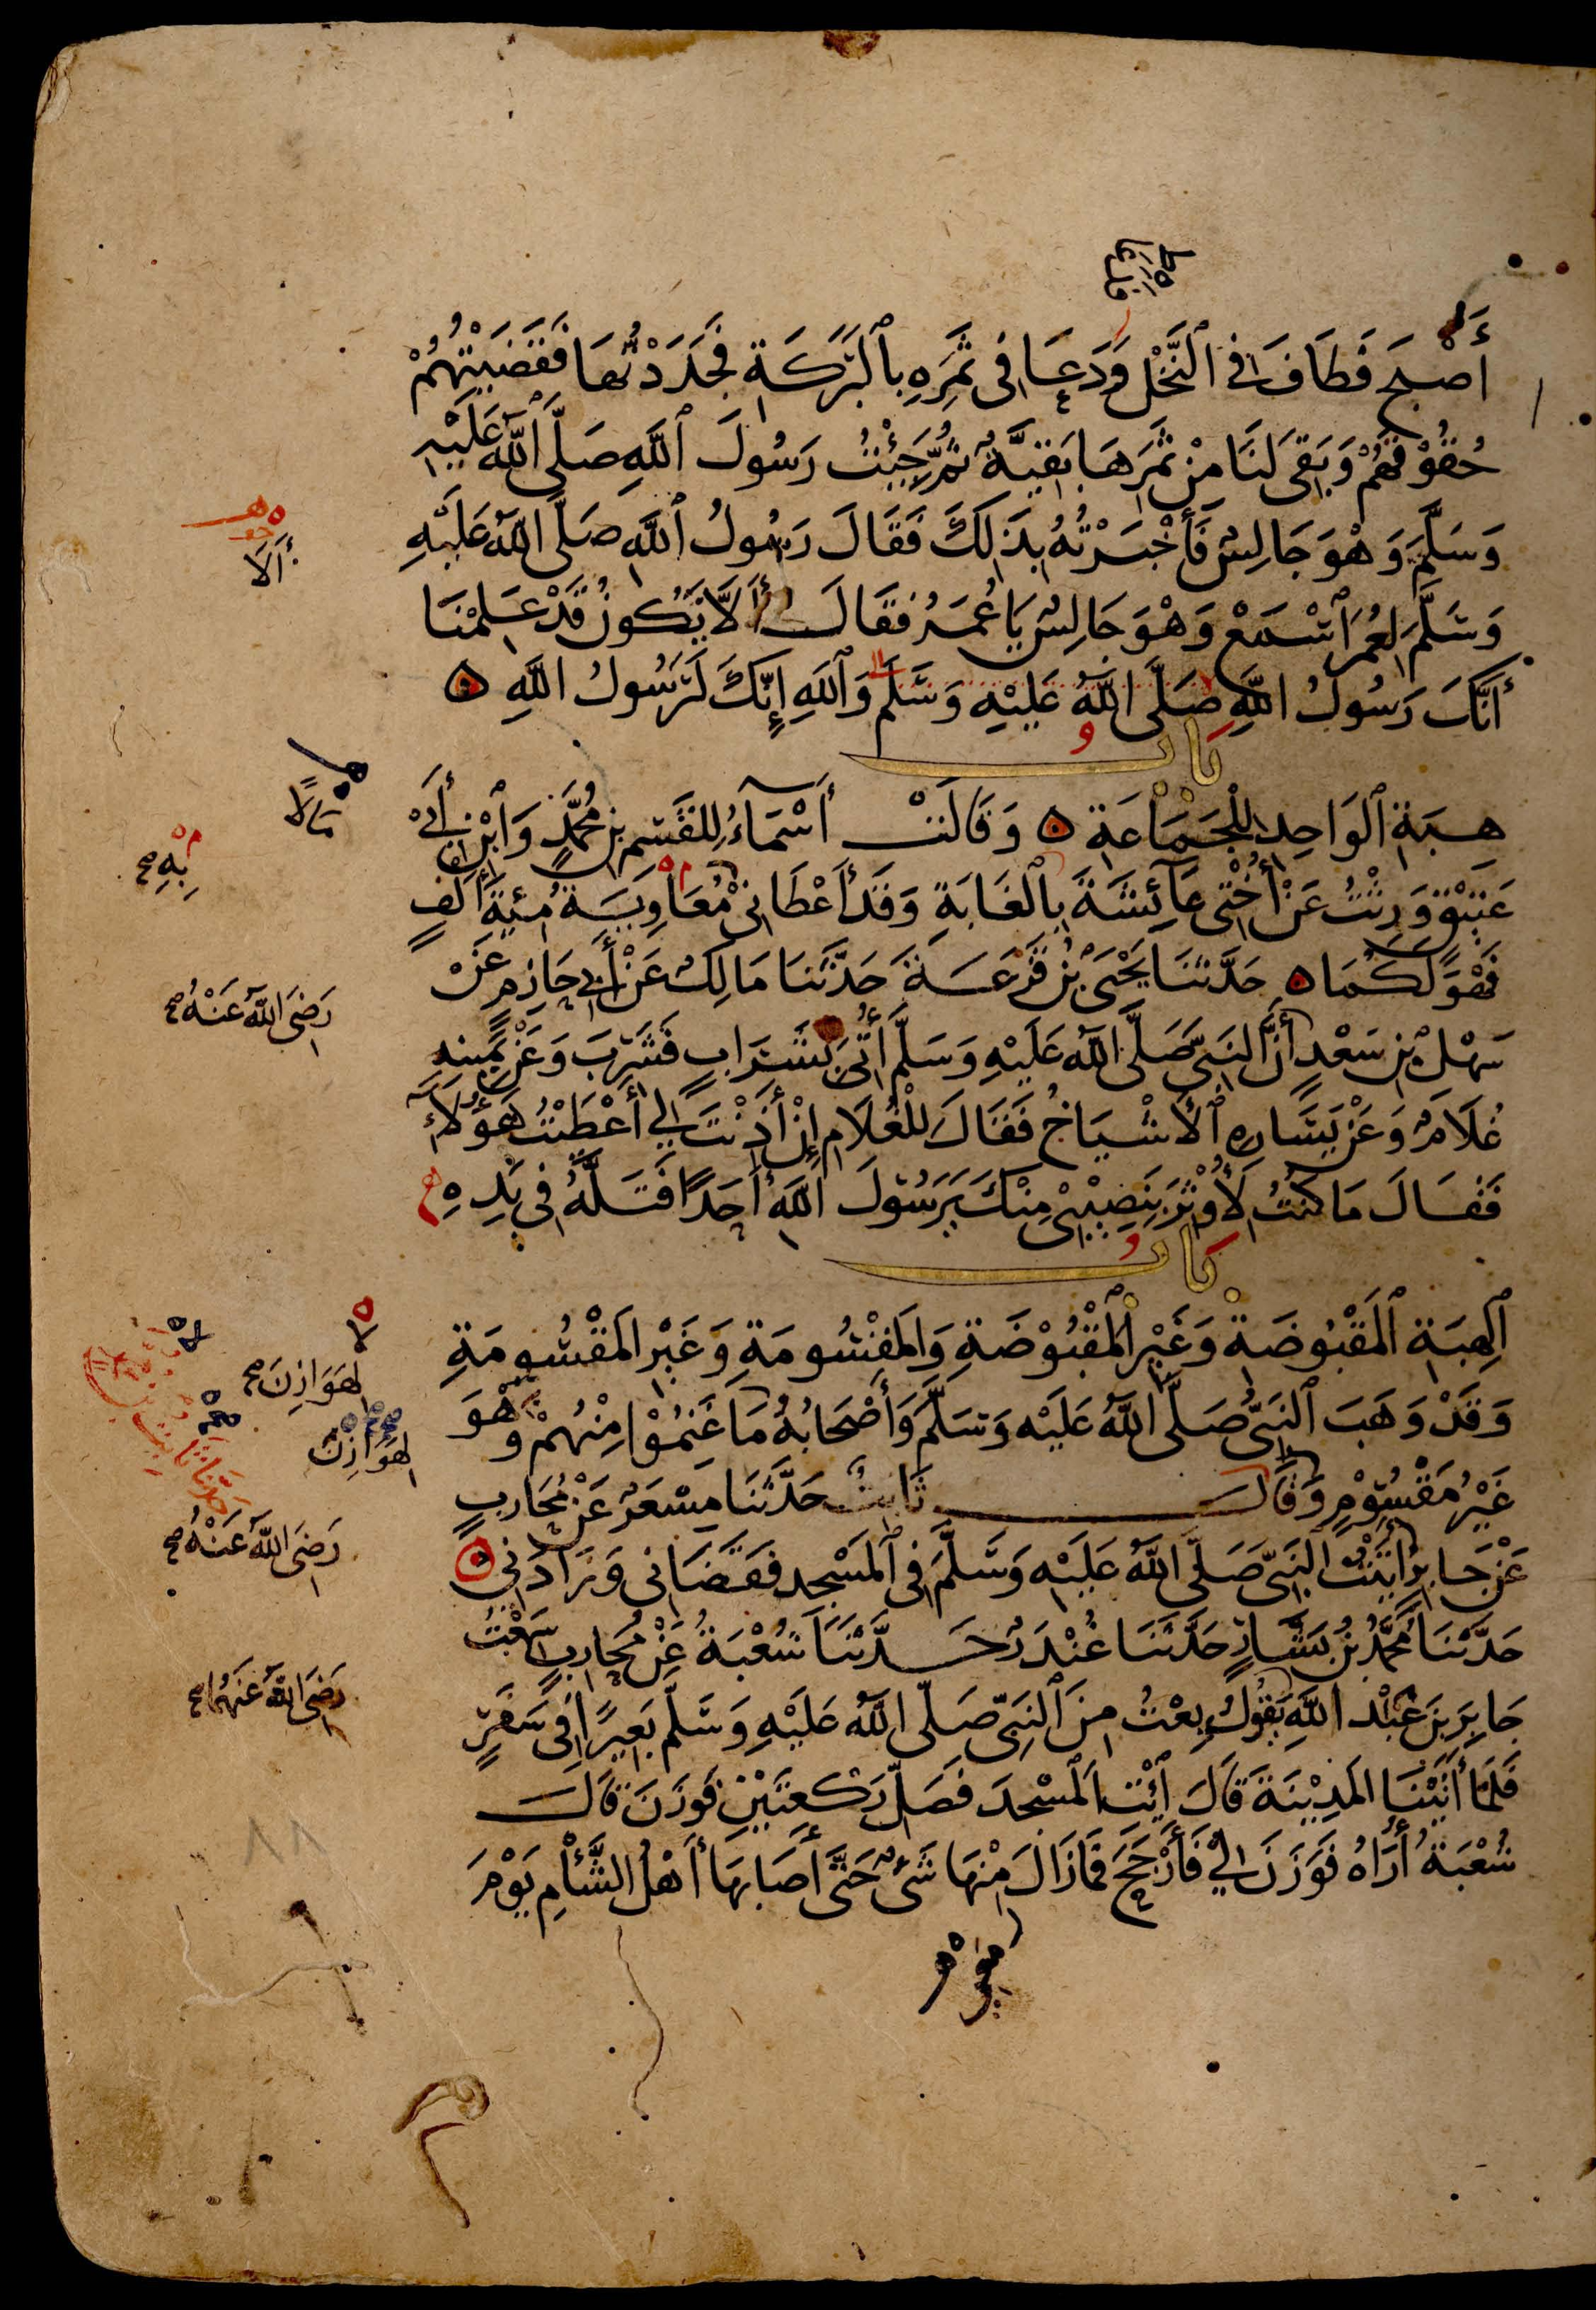 أَصْبَحَ فَطَافَ فِي ٱلنَّخْلِ وَدَعَا فِي ثَمَرِهِ بِٱلْبَرَكَةِ فَجَدَدْتُهَا فَقَضَيْتُهُمْ
حُقُوْقَهُمْ وَبَقِيَ لَنَا مِنْ ثَمَرِهَا بَقِيَّةٌ ثُمَّ جِئْتُ رَسُولَ ٱللَّهِ صَلَّى ٱللَّهُ عَلَيْهِ
وَسَلَّمَ وَهْوَ جَالِسٌ فَأَخْبَرْتُهُ بِذَلِكَ فَقَالَ رَسُولُ ٱللَّهِ صَلَّى ٱللَّهُ عَلَيْهِ
أَلَا
وَسَلَّمَ لِعُمَرَ ٱسْمَعْ وَهْوَ جَالِسٌ يَا عُمَرُ فَقَالَ أَلَّا يَكُونُ قَدْ عَلِمْنَا
أَنَّكَ رَسُولُ اللَّهِ صَلَّى اللَّهُ عَلَيْهِ وَسَلَّمَ وَٱللَّهِ إِنَّكَ لَرَسُولُ اللَّهِ ه
بَابُ
هِبَةِ ٱلْوَاحِدِ لِلْجَمَاعَةِ ه وَقَالَتْ أَسْمَآءُ لِلْقَسِمِ بْنِ مُحَمَّدٍ وَٱبْنِ أَبِي
مَالًا
عَتِيْقٍ وَرِثْتُ عَنْ أُخْتِي عَآئِشَةَ بِٱلْغَابَةِ وَقَدْ أَعْطَانِي مُعَاوِيَةُ مِئَةَ أَلْفٍ
بِهِ صح
فَهْوَ لَكُمَا ه حَدَّثَنَا يَحْيَى بْنُ قَزَعَةَ حَدَّثَنَا مَالِكٌ عَنْ أَبِي حَازِمٍ عَنْ
سَهْلِ بْنِ سَعْدٍ أَنَّ النَّبِيَّ صَلَّى ٱللَّهُ عَلَيْهِ وَسَلَّمَ أُتِيَ بِشَرَابٍ فَشَرِبَ وَعَنْ يَمِينِهِ
رَضِيَ اللَّهُ عَنْهُ صح
غُلَامٌ وَعَنْ يَسَارِهِ ٱلْأَشْيَاخُ فَقَالَ لِلْغُلَامِ إِنْ أَذِنْتَ لِي أَعْطَيْتُ هَؤُلَآءِ
فَقَالَ مَا كُنْتُ لِأُوْثِرَ بِنَصِيْبِيْ مِنْكَ يَرَسُوْلَ اللَّهِ أَحَدًا فَتَلَّهُ فِي يَدِهِ
بَابُ
ٱلْهِبَةِ ٱلْمَقْبُوضَةِ وَغَيْرِ ٱلْمَقْبُوْضَةِ وَالْمَقْسُومَةِ وَغَيْرِ الْمَقْسُومَةِ
وَقَدْ وَهَبَ ٱلنَّبِيُّ صَلَّى اللَّهُ عَلَيْهِ وَسَلَّمَ وَأَصْحَابُهُ مَا غَنِمُوْا مِنْهُمْ وَهْوَ
لِهَوَازِنَ صح
لِهَوَازِنَ
غَيْرُ مَقْسُوْمٍ وَقَالَ ثَابِتٌ حَدَّثَنَا مِسْعَرٌ عَنْ مُحَارِبٍ
حَدَّثَنَا ثَابِتٌ
عَنْ جَابِرٍ أَتَيْتُ النَّبِيَّ صَلَّى اللَّهُ عَلَيْهِ وَسَلَّمَ فِي ٱلْمَسْجِدِ فَقَضَانِي وَزَادَنِي ه
رَضِيَ اللَّهُ عَنْهُ صح
حَدَّثَنَا مُحَمَّدُ بْنُ بَشَّارٍ حَدَّثَنَا غُنْدَرٌ حَدَّثَنَا شُعْبَةُ عَنْ مُحَارِبٍ سَمِعْتُ
جَابِرَ بْنَ عَبْدِ اللَّهِ يَقُولُ بِعْتُ مِنَ ٱلنَّبِيِّ صَلَّى اللَّهُ عَلَيْهِ وَسَلَّمَ بَعِيرًا فِي سَفَرٍ
رَضِيَ اللَّهُ عَنْهُمَا صح
فَلَمَّا أَتَيْنَا الْمَدِيْنَةَ قَالَ ٱئْتِ ٱلْمَسْجِدَ فَصَلِّ رَكْعَتَيْنِ فَوَزَنَ قَالَ
شُعْبَةُ أُرَاهُ فَوَزَنَ لِيْ فَأَرْجَحَ فَمَا زَالَ مِنْهَا شَيْءٌ حَتَّى أَصَابَهَا أَهْلُ الشَّأْمِ يَوْمَ
٨٨